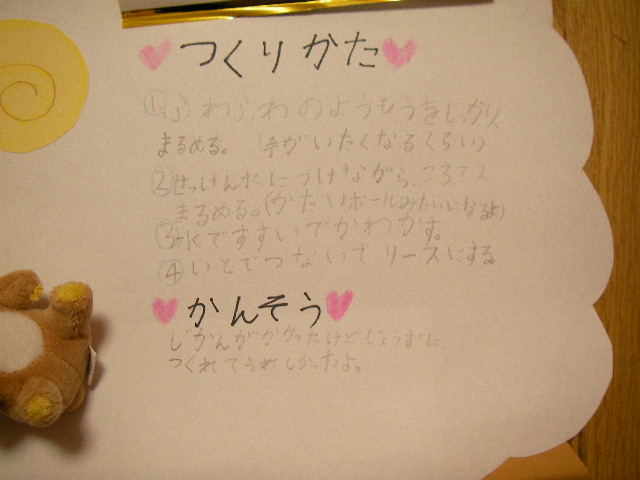 つくりかた
①ふわふわのようもうをしっかり
まるめる。(手がいたくなるくらい)
②せっけん水につけながら、ころころ
まるめる。(かたいボールみたいになるよ)
③水ですすいでかわかす。
④いとでつないでリースにする。
かんそう
じかんがかかったけど、じょうずに、
つくれてうれしかったよ。